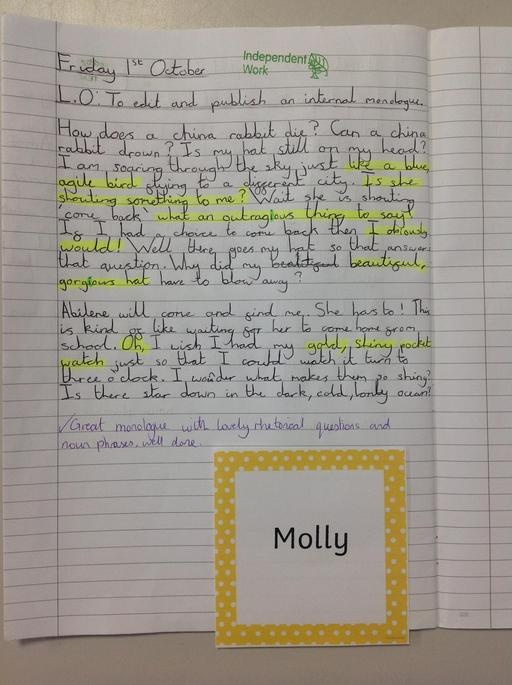 Friday 1st October
Independent
Work
L.O: To edit and publish an internal monologue.
How does a china rabbit die? Can a china
rabbit drown? Is my hat still on my head?
I am soaring through the sky just like a blue,
agile bird flying to a different city. Is she
shouting something to me? Wait she is shouting
'come back' what an outragious thing to say!
If I had a choice to come back then I obiously
would! Well there goes my hat so that answers
that question. Why did my beautiful beautiful,
gorgious hat have to blow away?
Abilene will come and find me. She has to! This
is kind of like waiting for her to come home from
school. Oh, I wish I had my gold, shiny pocket
watch just so that I could watch it turn to
three o clock. I wonder what makes them so shiny?
Is there star down in the dark, cold, lonly ocean?
✓Great monologue with lovely rhetorical questions and
noun phrases, well done.
Molly